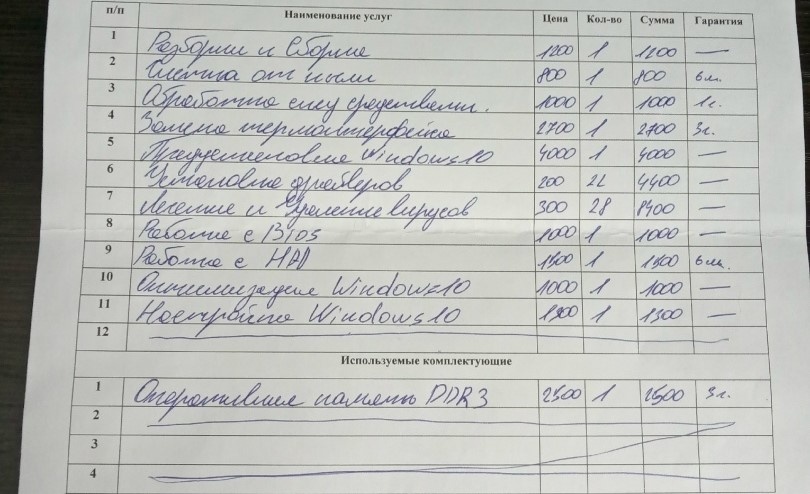 п/п Наименование услуг Цена Кол-во Сумма Гарантия
1 Разборка и Сборка 1200 1 1200 —
2 Чистка от пыли 800 1 800 6м.
3 Обработка спец средствами. 1000 1 1000 1г.
4 Замена термоинтерфейса 2700 1 2700 3г.
5 Предустановка Windows10 4000 1 4000 —
6 Установка драйверов 200 22 4400 —
7 Лечение и Удаление вирусов 300 28 8400 —
8 Работа с Bios 1000 1 1000 —
9 Работа с HDD 1 6м.
10 Оптимизация Windows10 1000 1 1000 —
11 Настройка Windows10 1300 1 1300 —
12
Используемые комплектующие
1 Оперативная память DDR3 2500 1 2500 3г.
2
3
4